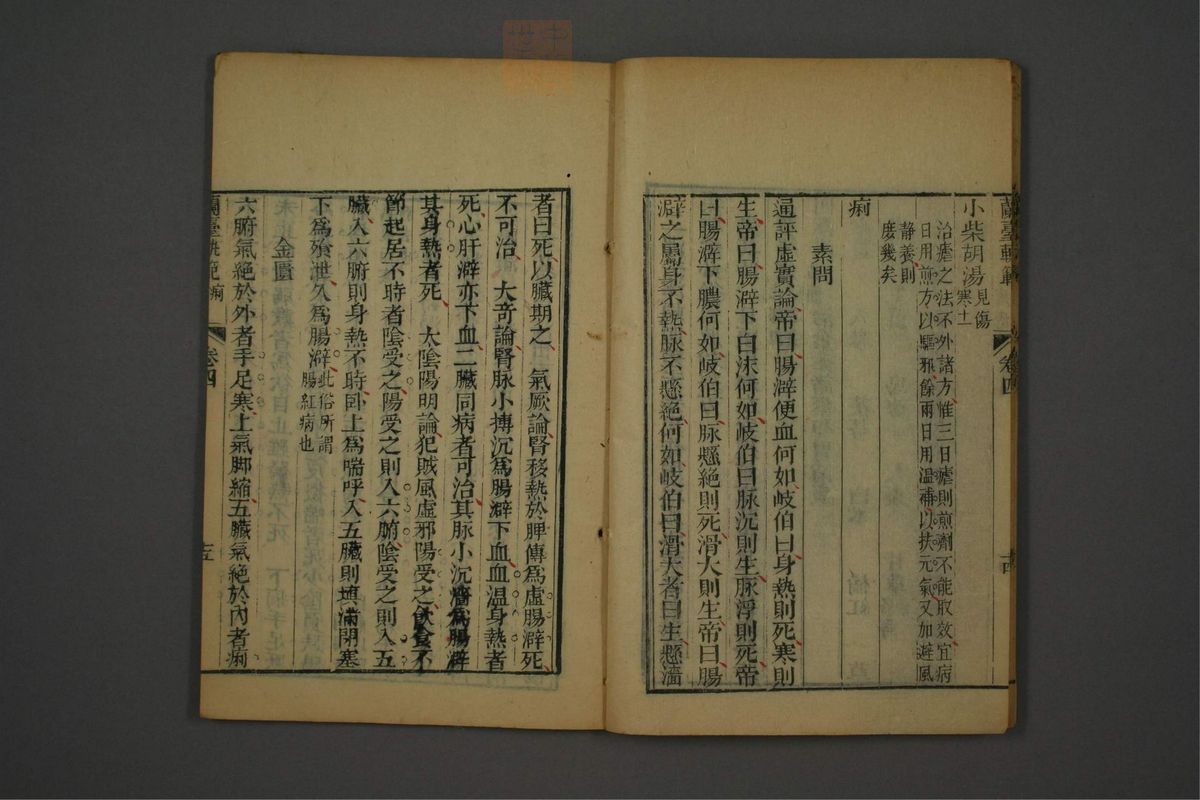 蘭臺軌範
卷四
十四
小柴胡湯見傷寒十一
治瘧之法不外諸方惟三日瘧則煎劑不能取效宜病
日用煎方以驅邪餘兩日用溫補以扶元氣又加避風
靜養則
庶幾矣
痢
素問
通評虛實論帝曰腸澼便血何如岐伯曰身熱則死寒則
生帝曰腸澼下白沫何如岐伯曰脈沉則生脈浮則死帝
曰腸澼下膿何如岐伯曰脈懸絕則死滑大則生帝曰腸
澼之屬身不熱脈不懸絕何如岐伯曰滑大者曰生懸濇
者曰死以臟期之 氣厥論腎移熱於脾傳為虛腸澼死
不可治 大奇論腎脈小搏沉為腸澼下血血溫身熱者
死心肝澼亦下血二臟同病者可治其脈小沉濇為腸澼
其身熱者死 太陰陽明論犯賊風虛邪陽受之飲食不
節起居不時者陰受之陽受之則入六腑陰受之則入五
臟入六腑則身熱不時臥上為喘呼入五臟則䐜滿閉塞
下為飧泄久為腸澼此俗所謂腸紅病也
金匱
六腑氣絕於外者手足寒上氣脚縮五臟氣絕於內者痢
蘭臺軌範 痢
卷四
十五